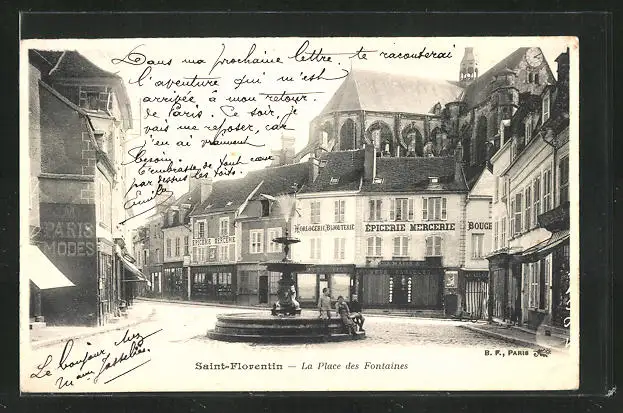 Dans ma prochaine lettre te raconterai
l'aventure qui m'est
arrivée à mon retour
de Paris. Ce soir, je
vais me reposer, car
j'en ai vraiment
besoin.
T'embrasse de tout cœur
par dessus les toits
Emile
PARIS
MODES
EPICERIE MERCERIE
HORLOGERIE BIJOUTERIE
ÉPICERIE MERCERIE
BOUGE
Le bonjour chez
Saint-Florentin — La Place des Fontaines
B. F., Paris